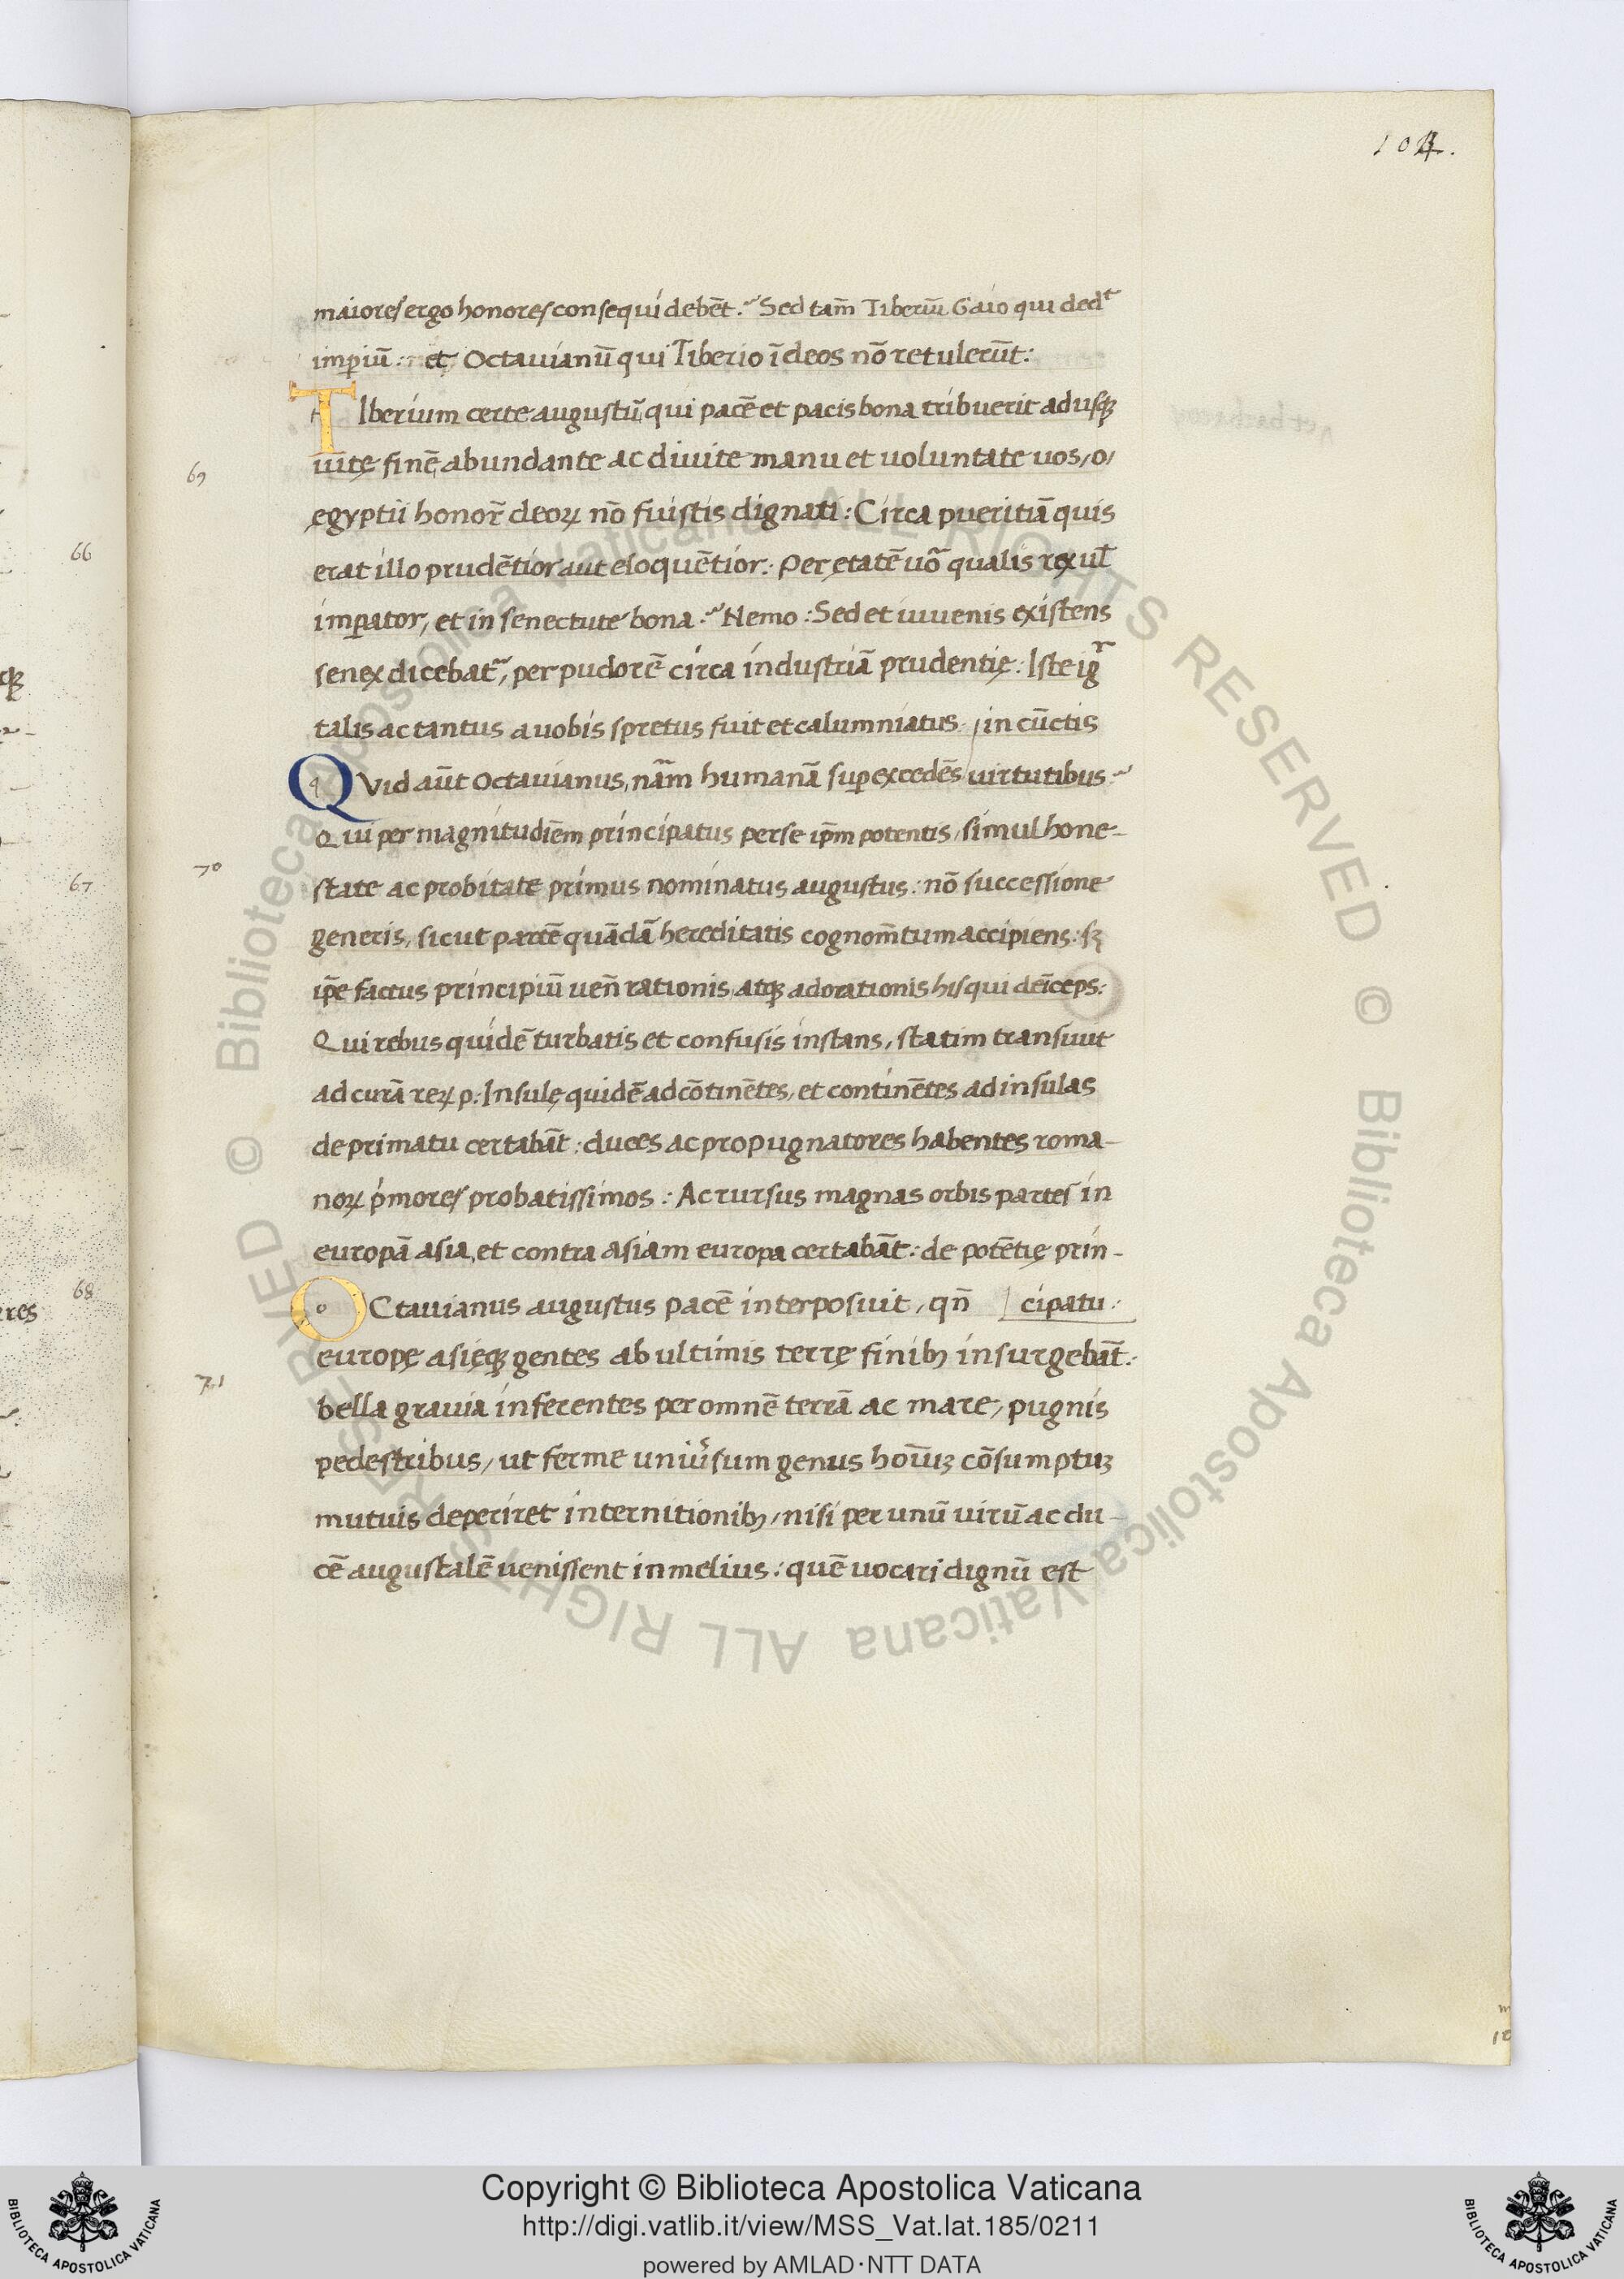 104.
maiores ergo honores consequi debēt. Sed tam̄ Tiberiū Gaio qui dedᵗ
imꝑiū: et Octauianū qui Tiberio ī deos nō retulerūt:
TIberium certe augustū, qui pacē et pacis bona tribuerit ad usqꝫ
uitę finē, abundante ac diuite manu et uoluntate uos, o,
ęgyptii honor̄ deoꝝ nō fuistis dignati: Circa pueritiā quis
erat illo prudētior aut eloquētior: Per ętatē uō qualis rex ul̄
imꝑator, et in senectute bona. Nemo: Sed et iuuenis existens
senex dicebat̄, per pudorē circa industriā prudentię: Iste igr̄
talis ac tantus a uobis spretus fuit et calumniatus. in cūctis
QVid aūt Octauianus, nām humanā suꝑexcedēs uirtutibus.
Qui per magnitudiēm principatus per se ip̄m potentis, simul hone-
state ac probitate primus nominatus augustus: nō successione
generis, sicut partē quādā hereditatis cognom̄tum accipiens: sꝫ
ip̄e factus principiū uen̄rationis atqꝫ adorationis his qui deīceps:
Qui rebus quidē turbatis et confusis instans, statim transiuit
ad curā reꝝ p: Insulę quidē ad cōtinētes, et continētes ad insulas
de primatu certabāt: duces ac propugnatores habentes roma-
noꝝ p̍mores probatissimos: Ac rursus magnas orbis partes in
europā asia, et contra asiam europa certabāt: de potētię prin-
OCtauianus augustus pacē interposuit, qn̄ cipatu:
europę asięqꝫ gentes ab ultimis terrę finibꝫ insurgebāt:
bella grauia inferentes per omnē terrā ac mare, pugnis
pedestribus, ut ferme uniũsum genus hoīuꝫ cōsumptuꝫ
mutuis deperiret internitionibꝫ, nisi per unū uirū ac du-
cē augustalē uenissent in melius: quē uocari dignū est
69
70
71
66
67
68
Copyright © Biblioteca Apostolica Vaticana
http://digi.vatlib.it/view/MSS_Vat.lat.185/0211
powered by AMLAD·NTT DATA
BIBLIOTECA APOSTOLICA VATICANA
BIBLIOTECA APOSTOLICA VATICANA
© Biblioteca Apostolica Vaticana ALL RIGHTS RESERVED
© Biblioteca Apostolica Vaticana ALL RIGHTS RESERVED